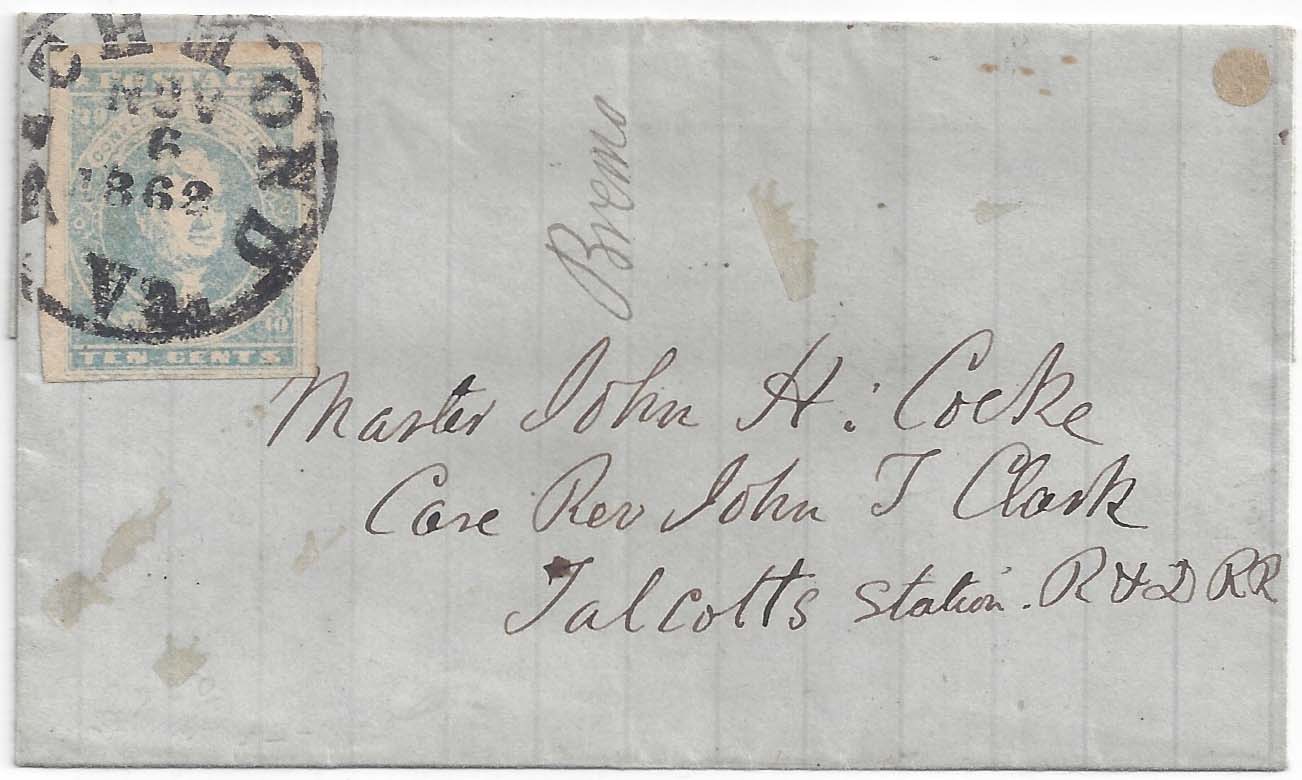 RICHMOND
APR
6
1862
VA.
POSTAGE
10
TEN CENTS
Bremo
Master John H: Cocke
Care Rev John T Clark
Talcotts Station. R & D RR